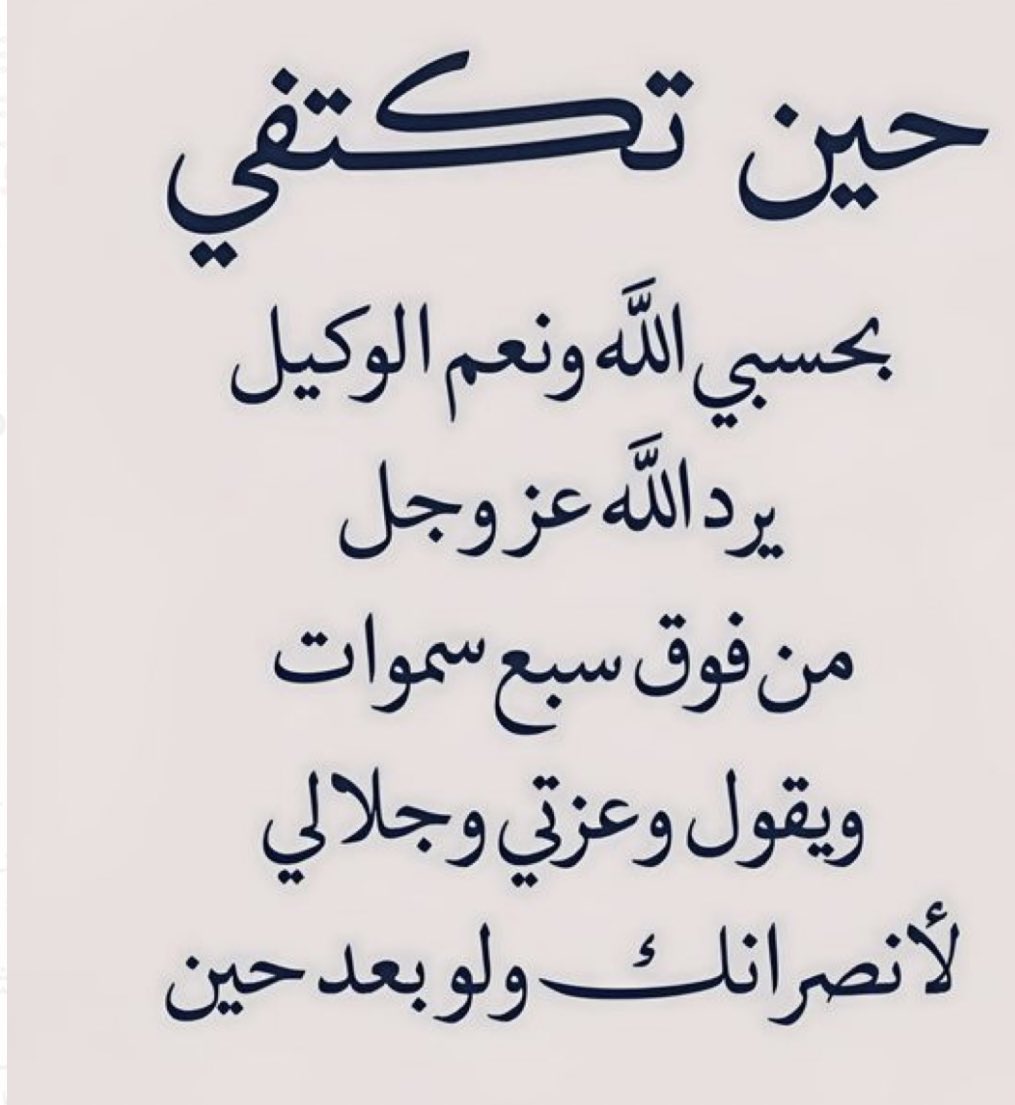 حين تكتفي
بحسبي اللَّه ونعم الوكيل
يرد اللَّه عز وجل
من فوق سبع سموات
ويقول وعزتي وجلالي
لأنصرانك ولو بعد حين